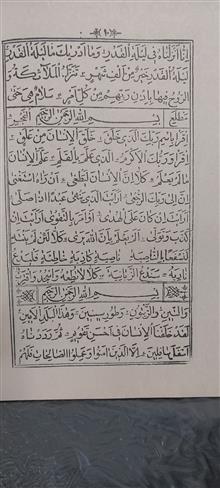 ١٠
اِنَّا اَنْزَلْنَاهُ فِي لَيْلَةِ الْقَدْرِ وَمَا اَدْرٰيكَ مَا لَيْلَةُ الْقَدْرِ
لَيْلَةُ الْقَدْرِ خَيْرٌ مِنْ اَلْفِ شَهْرٍ تَنَزَّلُ الْمَلٰٓئِكَةُ وَ
الرُّوحُ فِيهَا بِاِذْنِ رَبِّهِمْ مِنْ كُلِّ اَمْرٍ سَلَامٌ هِيَ حَتّٰى
مَطْلَعِ بِسْمِ اللّٰهِ الرَّحْمٰنِ الرَّحِيمِ الْفَجْرِ
اِقْرَاْ بِاسْمِ رَبِّكَ الَّذِي خَلَقَ خَلَقَ الْاِنْسَانَ مِنْ عَلَقٍ
اِقْرَاْ وَرَبُّكَ الْاَكْرَمُ الَّذِي عَلَّمَ بِالْقَلَمِ عَلَّمَ الْاِنْسَانَ
مَا لَمْ يَعْلَمْ كَلَّا اِنَّ الْاِنْسَانَ لَيَطْغٰى اَنْ رَاٰهُ اسْتَغْنٰى
اِنَّ اِلٰى رَبِّكَ الرُّجْعٰى اَرَاَيْتَ الَّذِي يَنْهٰى عَبْدًا اِذَا صَلّٰى
اَرَاَيْتَ اِنْ كَانَ عَلَى الْهُدٰى اَوْ اَمَرَ بِالتَّقْوٰى اَرَاَيْتَ اِنْ
كَذَّبَ وَتَوَلّٰى اَلَمْ يَعْلَمْ بِاَنَّ اللّٰهَ يَرٰى كَلَّا لَئِنْ لَمْ يَنْتَهِ
لَنَسْفَعًا بِالنَّاصِيَةِ نَاصِيَةٍ كَاذِبَةٍ خَاطِئَةٍ فَلْيَدْعُ
نَادِيَهُ سَنَدْعُ الزَّبَانِيَةَ كَلَّا لَا تُطِعْهُ وَاسْجُدْ وَاقْتَرِبْ
بِسْمِ اللّٰهِ الرَّحْمٰنِ الرَّحِيمِ
وَالتِّينِ وَالزَّيْتُونِ وَطُورِ سِينِينَ وَهٰذَا الْبَلَدِ الْاَمِينِ
لَقَدْ خَلَقْنَا الْاِنْسَانَ فِي اَحْسَنِ تَقْوِيمٍ ثُمَّ رَدَدْنَاهُ
اَسْفَلَ سَافِلِينَ اِلَّا الَّذِينَ اٰمَنُوا وَعَمِلُوا الصَّالِحَاتِ فَلَهُمْ